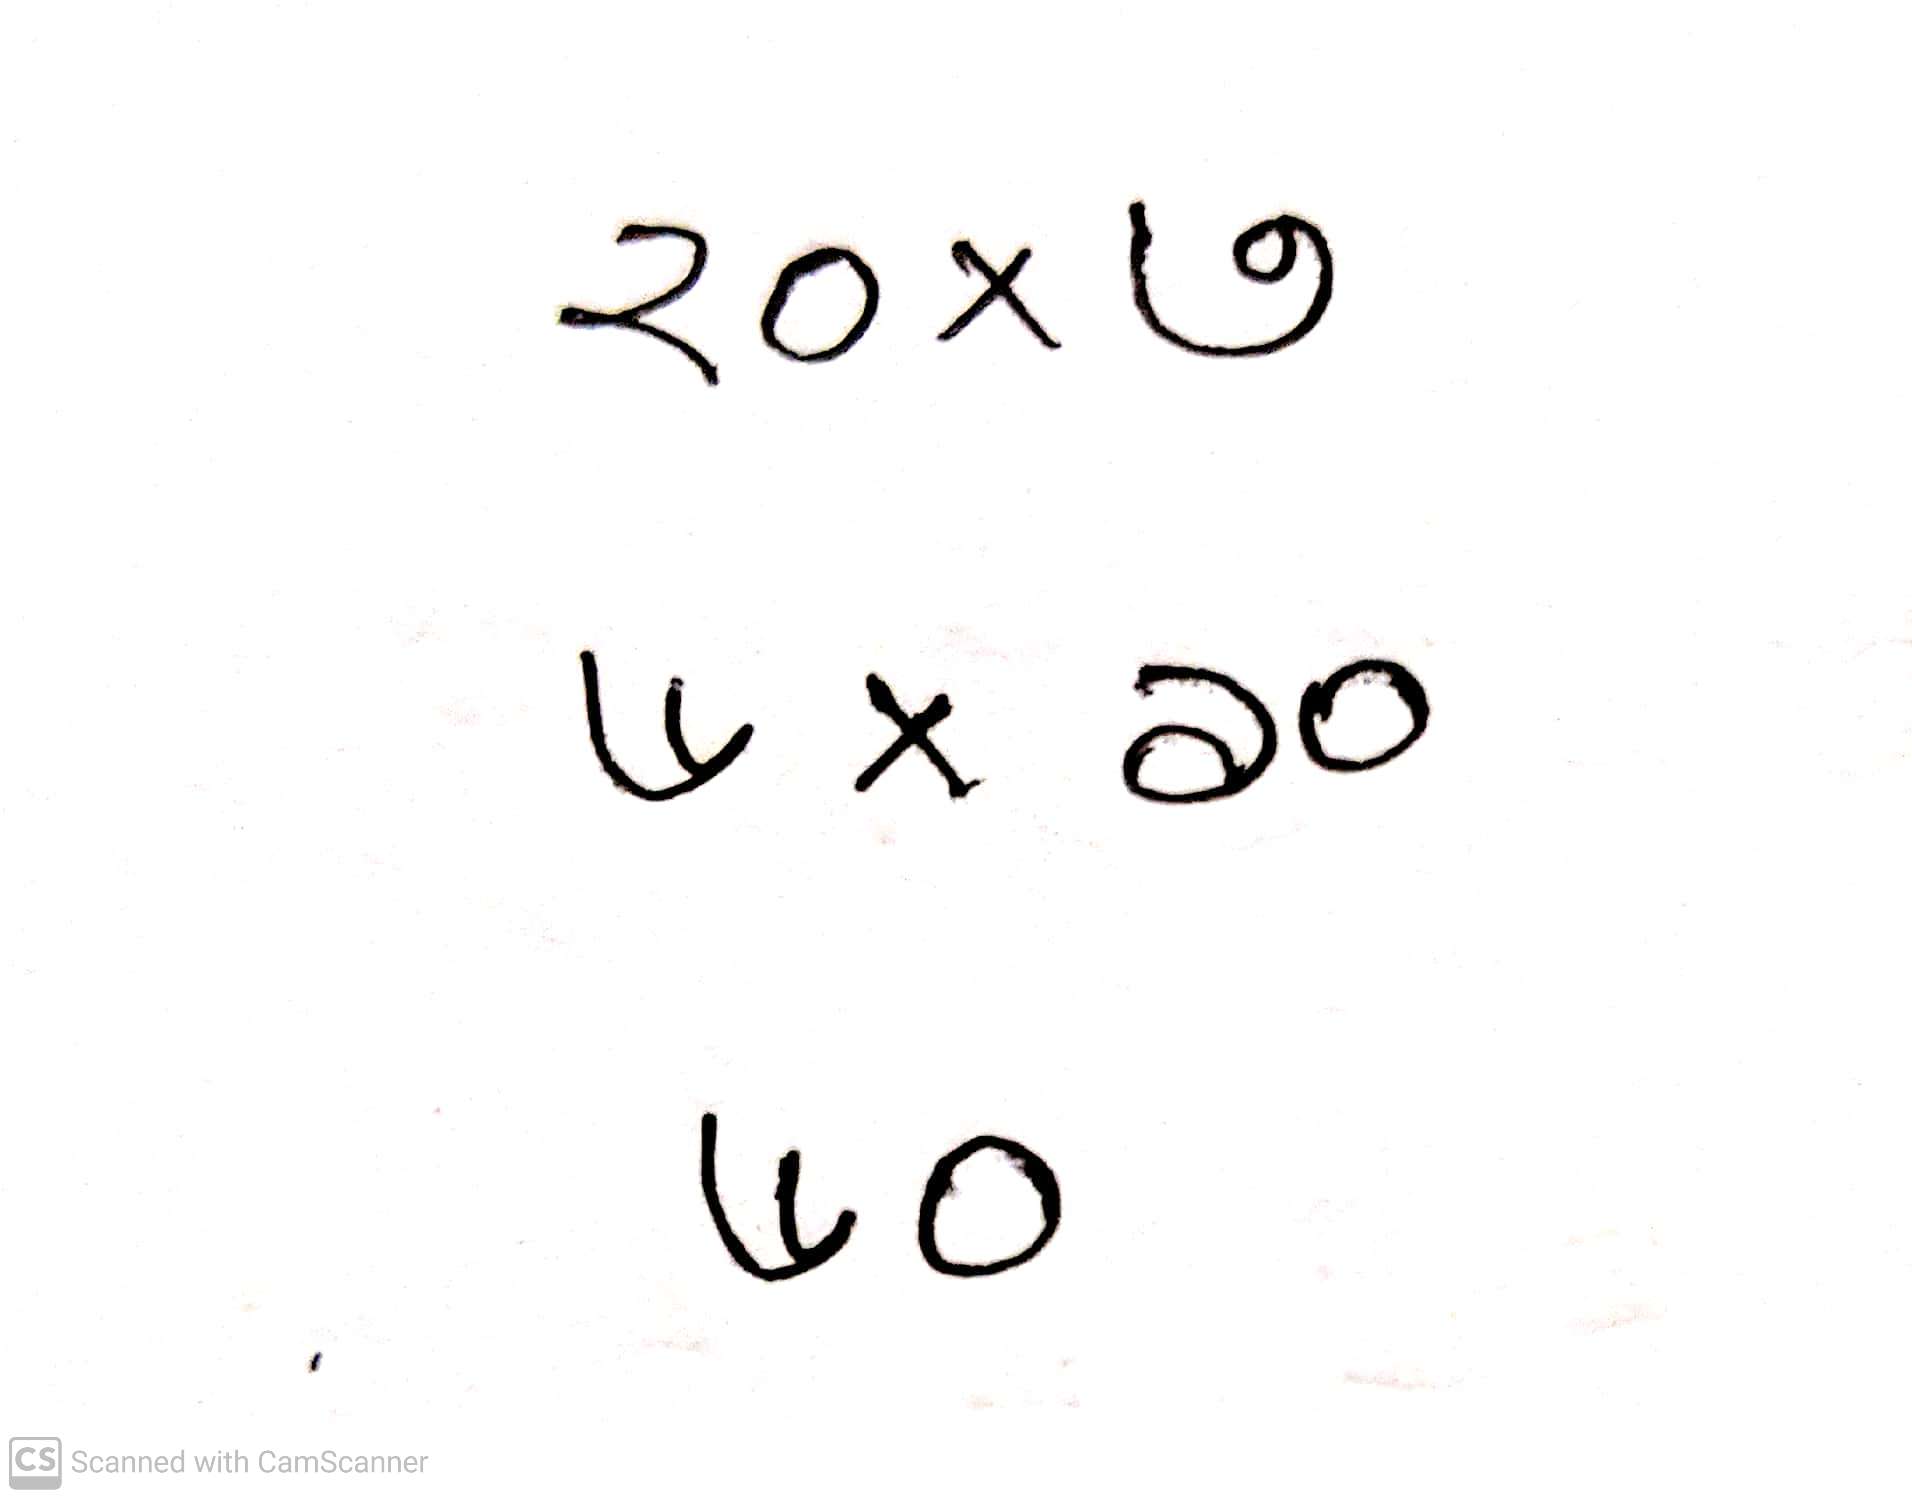 ২০×৩
৬×১০
৬০
Scanned with CamScanner